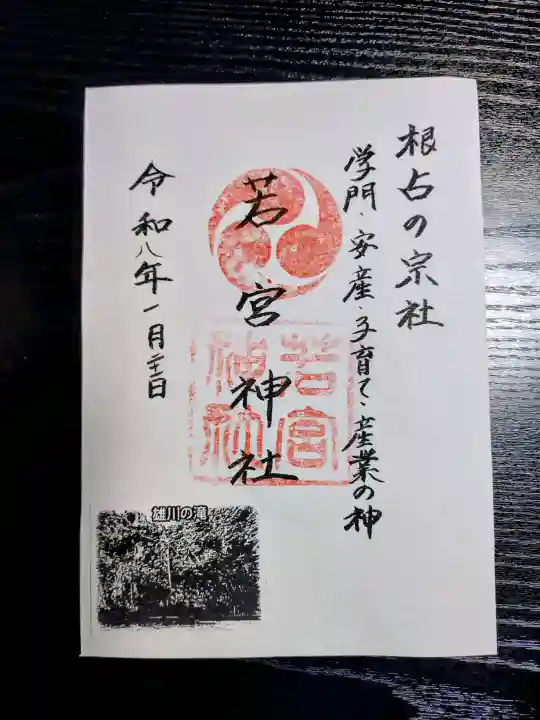 根占の宗社
学門・安産・子育て・産業の神
若宮神社
若宮
神社
令和八年一月二十二日
雄川の滝